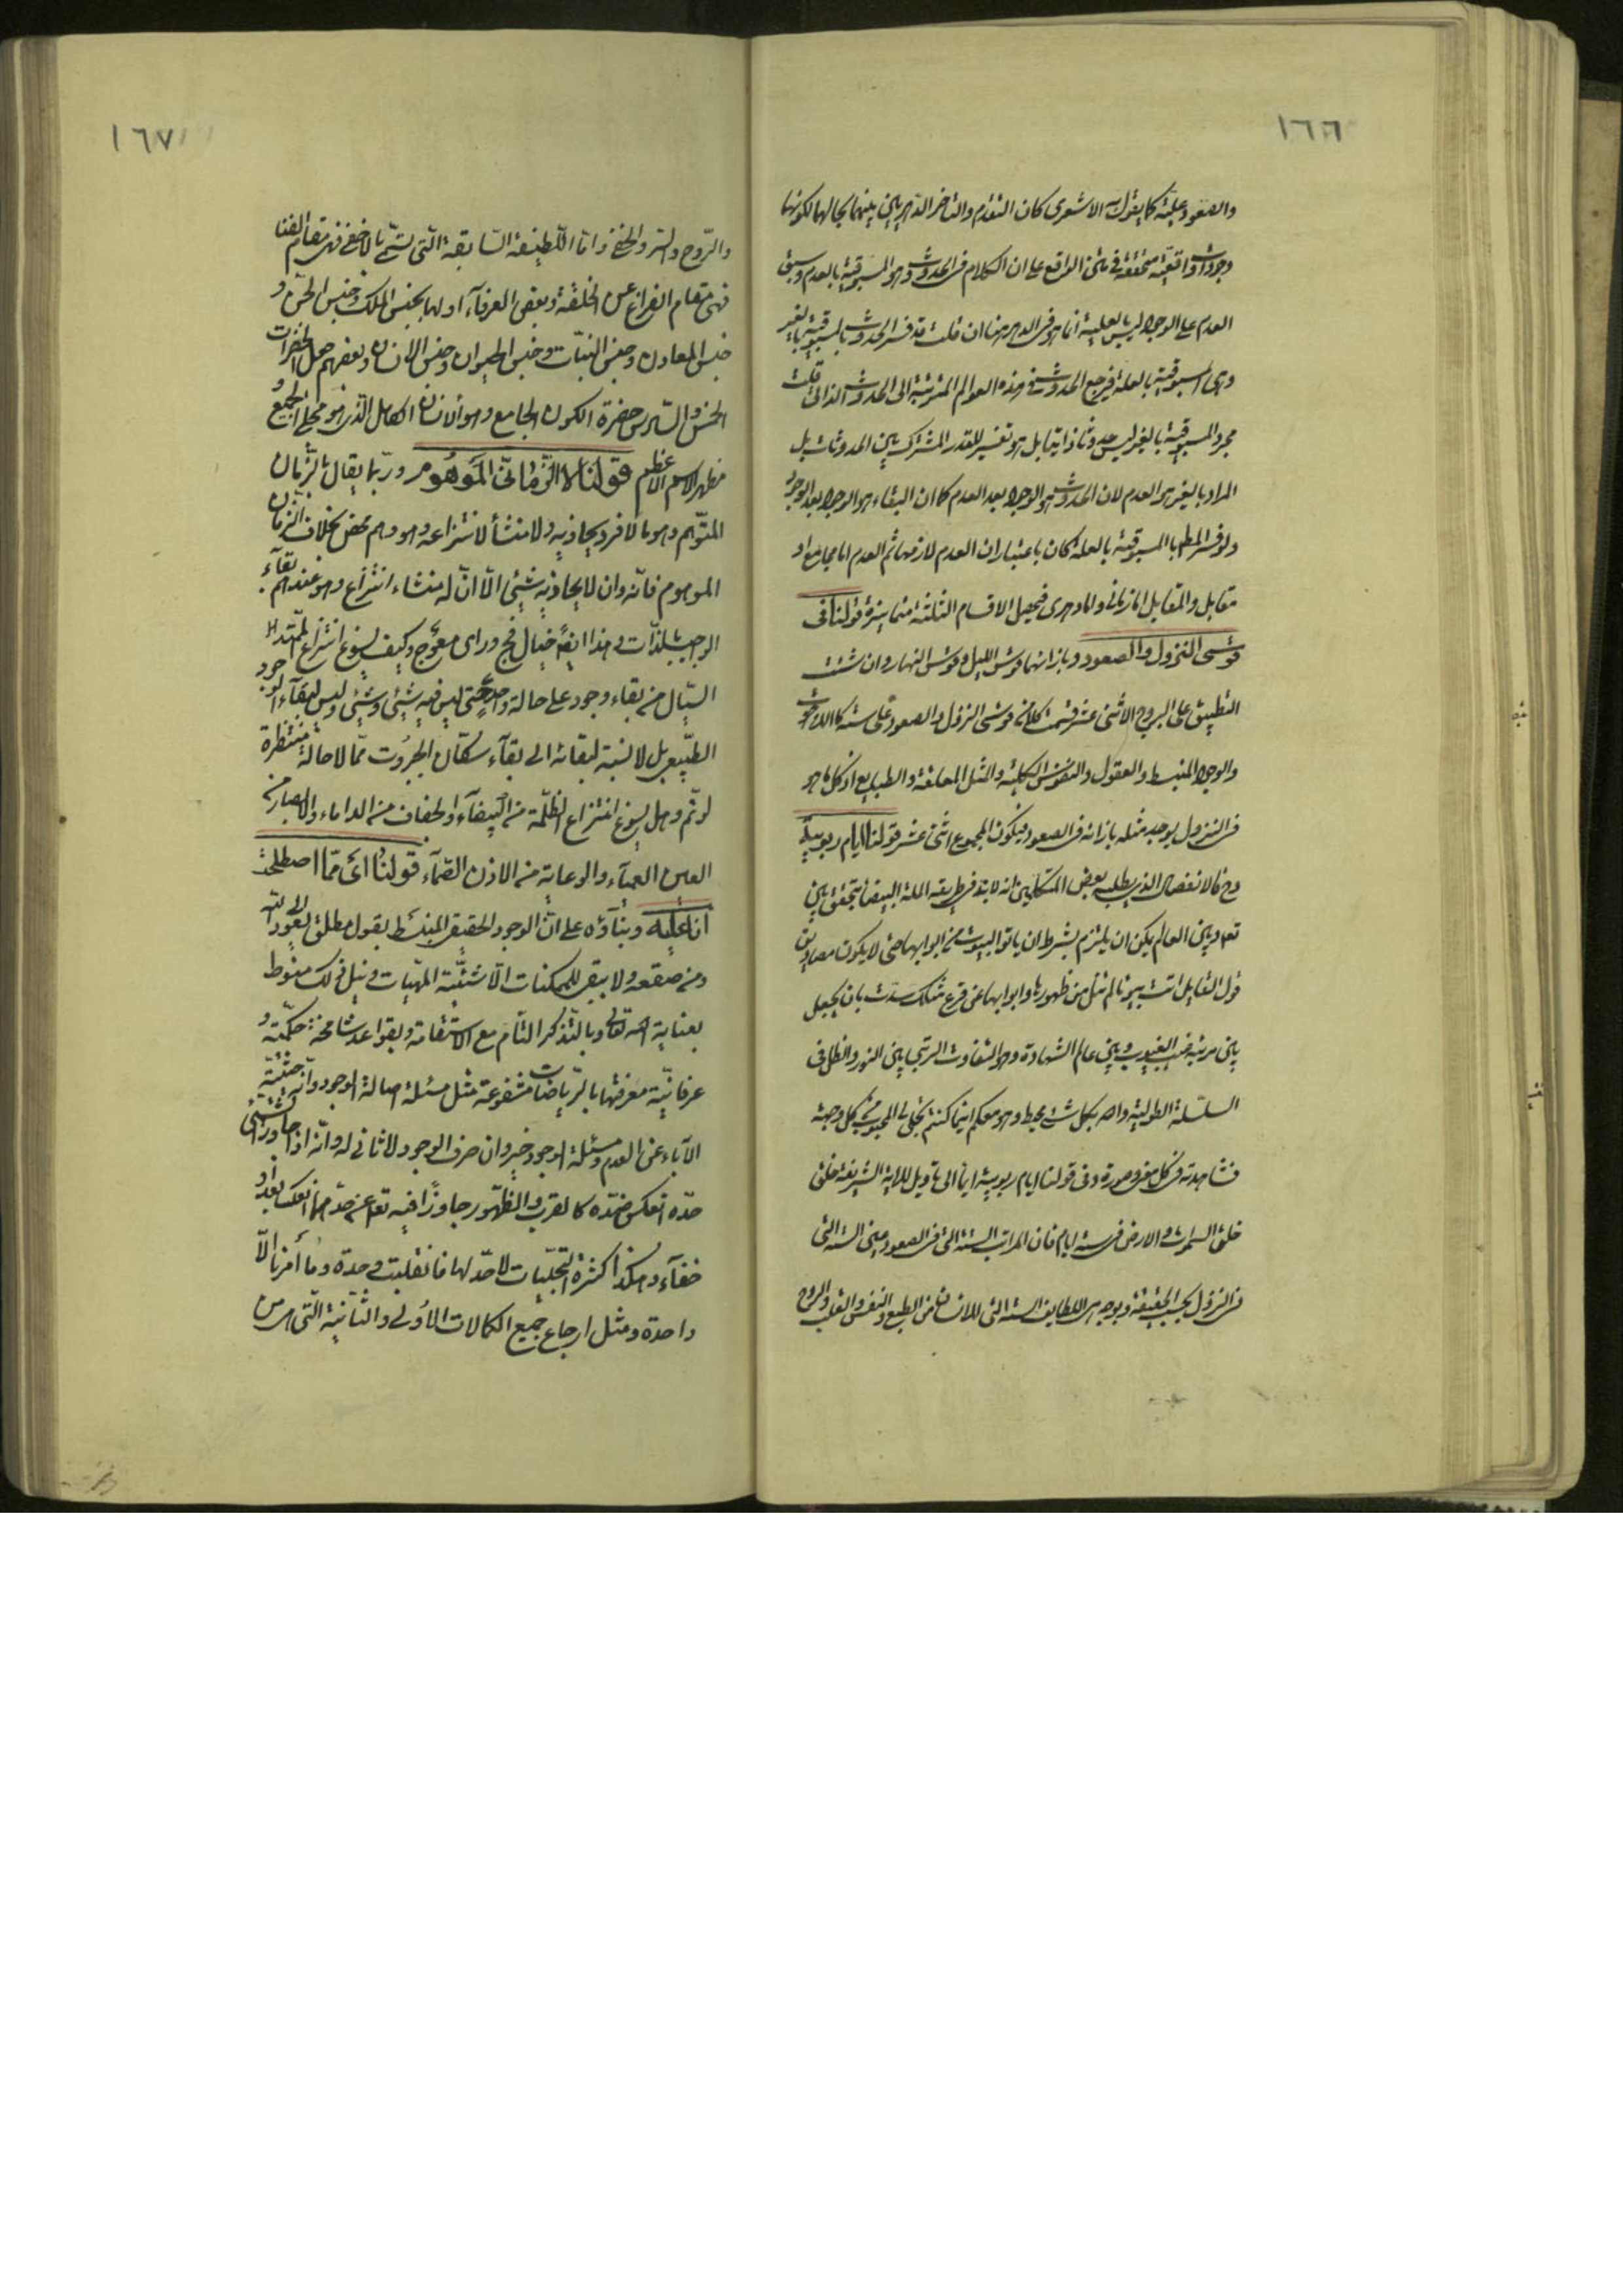 ١٦٦
والصعود علية كما يقول به الاشعرى كان التقدم والتاخر الدهريين بينهما بحالهما لكونها
وجودات واقعية متحققة في متن الواقع على ان الكلام فى الحدوث وهو المسبوقية بالعدم وسبق
العدم على الوجود ليس بالعلية انما هو فى الدهر هنا ان قلت قد فسر الحدوث بالمسبوقية بالغير
وهى المسبوقية بالعلة فيرجع الحدوث فى هذه العوالم المترتبة الى الحدوث الذاتى قلت
مجرد المسبوقية بالغير ليس حدوثا ذاتيا بل هو تفسير للقدر المشترك بين الحدوثات بل
المراد بالغير هو العدم لان الحدوث هو الوجود بعد العدم كما ان البقاء هو الوجود بعد الوجود
ولو فسر المطلق بالمسبوقية بالعلة كان باعتبار ان العدم لازمها ثم العدم اما مجامع او
مقابل والمقابل اما زمانى واما دهرى فيحصل الاقسام الثلثة متمايزة قولنا فى
قوسى النزول والصعود وبازائهما قوس الليل وقوس النهار وان شئت
التطبيق على البروج الاثنى عشر قسمت كلا من قوسى النزول والصعود على ستة كاللاهوت
والوجود المنبسط والعقول والنفوس الكلية والمثل المعلقة والطبايع اذ كل ما هو
فى النزول يوجد مثله بازائه فى الصعود فيكون المجموع اثنى عشر قولنا ايام ربوبية
وح فالانفصال الذى يطلبه بعض المتكلمين انه لابد فى طريقة الملة البيضاء تحقق بين
تعالى وبين العالم يمكن ان يلتزم بشرط ان ياتوا البيوت من ابوابها حتى لا يكون مصاديق
قول القايل اتيت بيوتا لم تنل من ظهورها وابوابها عن قرع مثلك سدت بان يجعل
بين مرتبة غيب الغيوب وبين عالم الشهادة وهو التفاوت الرتبى بين النور والظل فى
السلسلة الطولية والله بكل شىء محيط وهو معكم اينما كنتم تجلى لى المحبوب من كل وجهة
فشاهدته فى كل معنى وصورة وفى قولنا ايام ربوبية ايماء الى تاويل للاية الشريفة خلق
خلق السموات والارض فى ستة ايام فان المراتب الستة التى فى الصعود عين الستة التى
فى النزول بحسب الحقيقة وبوجه هى اللطايف الستة التى للانسان من الطبع والنفس والقلب والروح
١٦٧
والرّوح والسّر والخفى وامّا اللّطيفة السّابعة الّتى تسمّى بالاخفى فهى مقام الفنا
فهى مقام الفراغ عن الخلقة وبعض العرفآء اولها بجنس الملك وجنس الجنّ و
جنس المعادن وجنس النبات وجنس الحيوان وجنس الانسان وبعضهم جعل الحضرات
الخمس والسّادس حضرة الكون الجامع وهو الانسان الكامل الّذى هو مجلى الجميع و
مظهر الاسم الاعظم قولنا لا الزّمانىّ المَوهُوم وربّما يقال بالزّمان
المتوّهم وهو ما لا فرد يحاذيه ولا منشأ لانتزاعه وهو وهم محض بخلاف الزّمان
الموهوم فانّه وان لا يحاذيه شيئى الّا انّ له منشاء انتزاع وهو عندهم بقآء
الواجب بالذّات وهذا ايضًا خيال فجّ وراى معوّج وكيف يسوغ انتزاع الممتدّ
السيّال من بقاء وجود على حالة واحدة حتى ليس فيه شيئى وشيئى وليس لبقآء الوجود
الطّبيعى بل لا نسبة لبقائه الى بقآء سكّان الجبرُوت ممّا لا حالة منتظرة
لو تمّ وهل يسوغ انتزاع الظّلمة من البيضآء والجفاف من الداماء والابصار من
العين العميآء والوعاية من الاذن الصّمآء قولنُا اىْ ممّا اصطلحت
انا عليه وبنآؤه على انّ الوجود الحقيقى المنبسَط بقول مطلق يعود الى الله
ومن صقعه ولا يبقى للممكنات الّا شيئيّة المهيّات ونيل ذلك منوط
بعناية الله تعالى وبالتّذكر التّام مع الاستقامة وبقواعد شامخة حكميّة و
عرفانيّة معرفتها بالرّياضات مشفوعة مثل مسئلة اصالة الوجود وانّه حيثيّة
الآباء عن العدم ومسئلة الوجود خير وان صرف الوجود لا ثانى له وانّه اذا جاوز الشىء
حدّه انعكس ضدّه كالقرب والظّهور جاوزا فيه تعالى عن حدّهما فانعكسا بعدا و
خفآء وهكذا كثرة التّجلّيات لا حدّ لها فانقلبت وحدة وما أمرنا الّا
واحدة ومثل ارجاع جميع الكمالات الاُولى والثّانية الّتى هى من